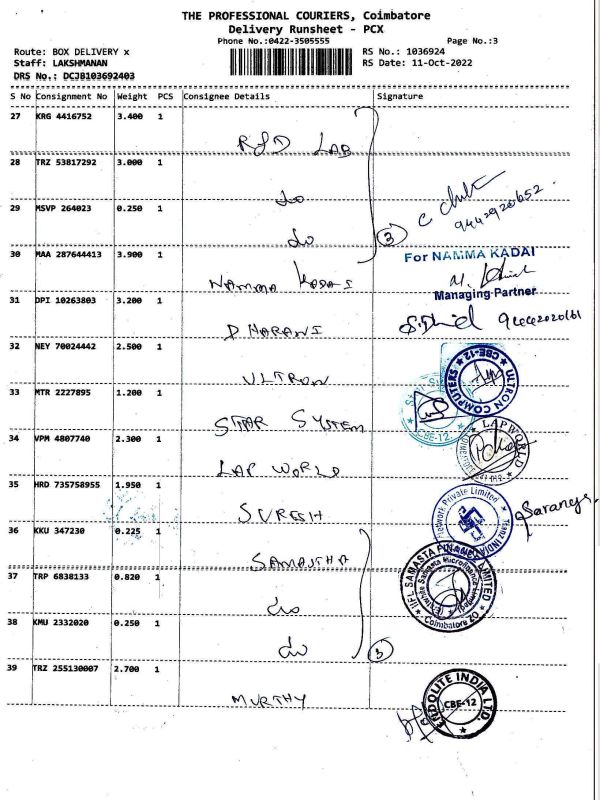 THE PROFESSIONAL COURIERS, Coimbatore
Delivery Runsheet - PCX
Phone No.:0422-3505555 Page No.:3
Route: BOX DELIVERY x RS No.: 1036924
Staff: LAKSHMANAN RS Date: 11-Oct-2022
DRS No.: DCJB103692403
S No Consignment No Weight PCS Consignee Details Signature
27 KRG 4416752 3.400 1
R&D LAB
28 TRZ 53817292 3.000 1
do
29 MSVP 264023 0.250 1
do
3
9442920652
30 MAA 287644413 3.900 1
NAMMA KADAI
For NAMMA KADAI
Managing Partner
31 DPI 10263803 3.200 1
DHARANI
32 NEY 70024442 2.500 1
ULTRON
ULTRON COMPUTERS CBE-12
33 MTR 2227895 1.200 1
STAR SYSTEM
CBE-12
34 VPM 4807740 2.300 1
LAP WORLD
LAPWORLD
35 HRD 735758955 1.950 1
SURESH
Network Private Limited
Saranya
36 KKU 347230 0.225 1
SAMASTHA
IIFL SAMASTA FINANCE LIMITED
Coimbatore ZO
37 TRP 6838133 0.820 1
do
38 KMU 2332020 0.250 1
do
3
39 TRZ 255130007 2.700 1
MURTHY
ENDOLITE INDIA LTD.
CBE-12